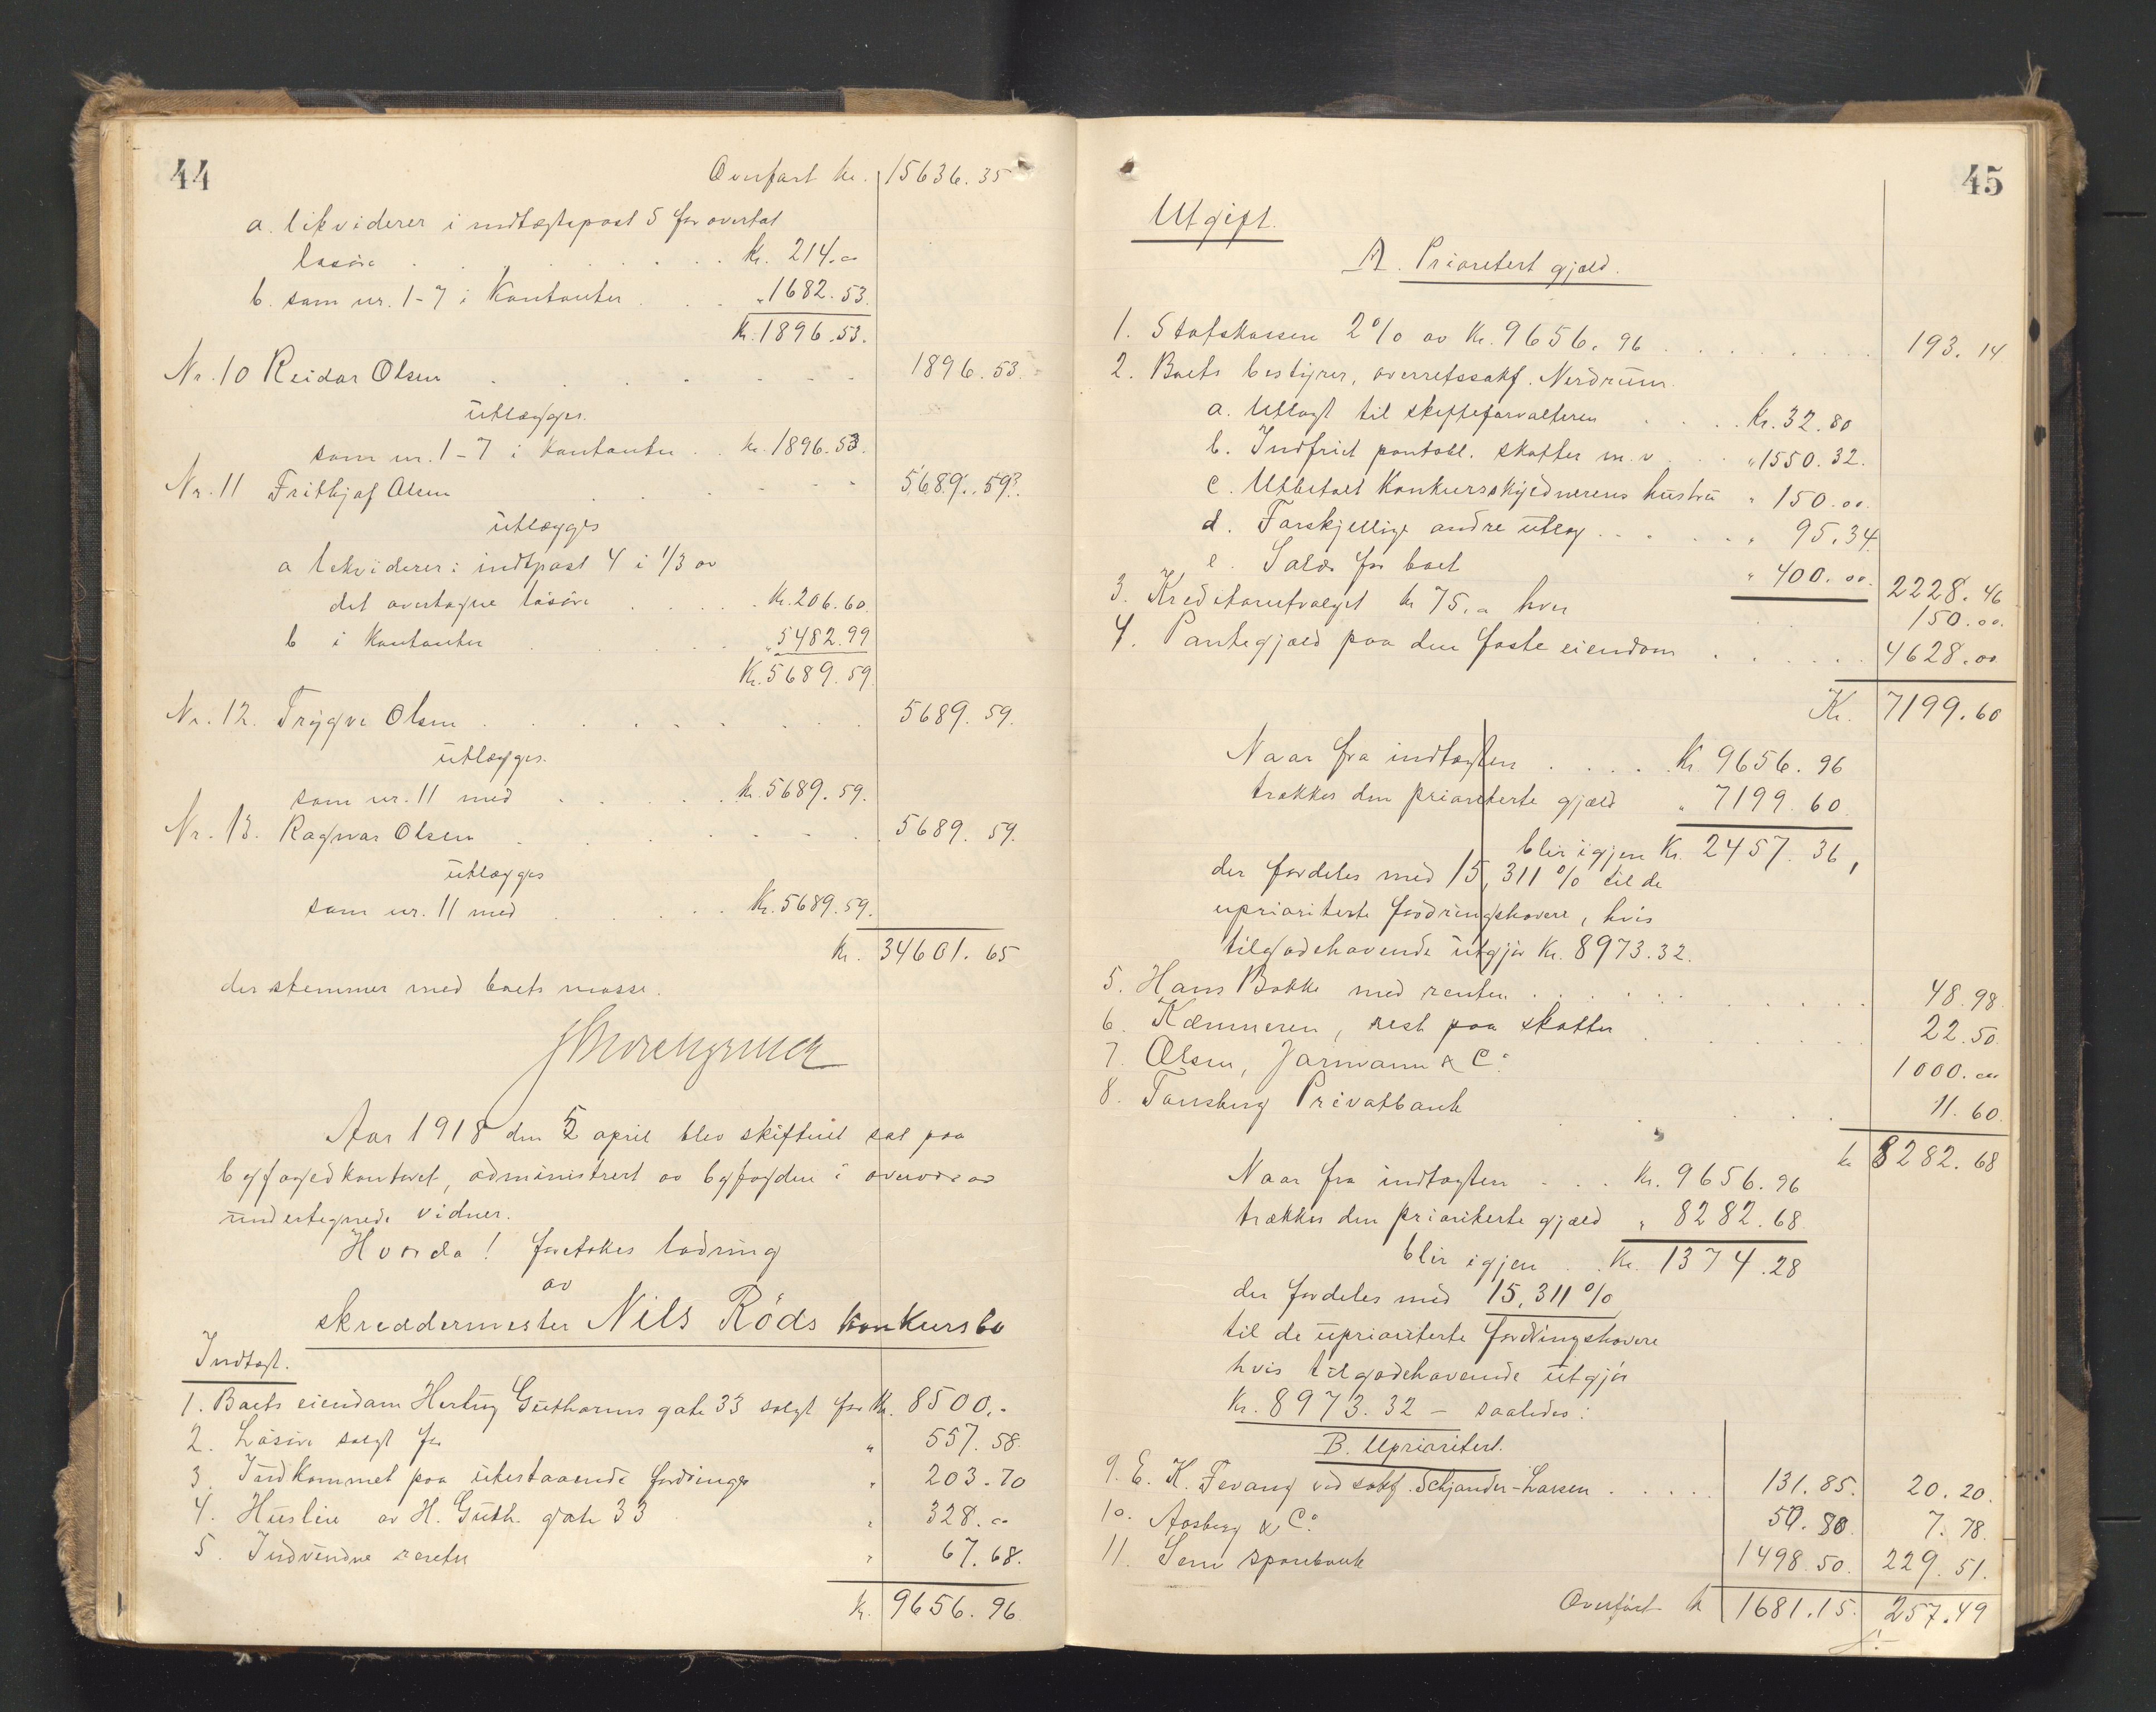 44
Overført kr. 15636.35
a. likviderer i indtægtspost 5 for overtat
løsøre . . . . . . . . kr. 214.00
b. som nr. 1-7 i kontanter . . . " 1682.53.
kr. 1896.53.
Nr. 10 Reidar Olsen . . . . . . . 1896.53.
utlægges.
som nr. 1-7 i kontanter . . kr. 1896.53.
Nr. 11 Frithjof Olsen . . . . . . 5689.59.
utlægges
a likviderer i indtpost 4 i 1/3 av
det overtagne løsøre . . . . . kr. 206.60.
b i kontanter . . . . . " 5482.99
Kr. 5689.59.
Nr. 12. Trygve Olsen . . . . . . . 5689.59.
utlægges.
som nr. 11 med . . . . . kr. 5689.59.
Nr. 13. Ragnar Olsen . . . . . . . 5689.59.
utlægges
som nr. 11 med . . . . . Kr. 5689.59.
kr. 34601.65
der stemmer med boets masse.
Aar 1918 den 5 april blev skifteret sat paa
byfogedkontoret, administrert av byfogden i overvær av
undertegnede vidner.
Hvorda! foretokes lodning
av
skræddermester Nils Röds konkursbo
Indtægt.
1. Boets eiendom Hertug Guthorms gate 33 solgt for Kr. 8500.-
2. Løsøre solgt for " 557.58.
3. Indkommet paa utestaaende fordringer " 203.70
4. Husleie av H. Guth. gate 33 " 328.00
5. Indvundne renter " 67.68.
kr. 9656.96
45
Utgift.
A. Prioritert gjæld.
1. Statskassen 2% av kr. 9656.96 . . . . . . . 193.14
2. Boets bestyrer, overretssakf. Nerdrum.
a. Utlagt til skifteforvalteren . . . . kr. 32.80
b. Indfriet pantobl. skatter m.v. . . " 1550.32.
c. Utbetalt konkursskyldnerens hustru " 150.00.
d. Forskjellige andre utlæg . . . . . " 95.34
e. Salær for boet " 400.00. 2228.46
3. Kreditorutvalget kr 75.00 hver 150.00.
4. Pantegjæld paa den faste eiendom . . . . . . 4628.00
Kr. 7199.60
Naar fra indtægten . . . . Kr. 9656.96
trækkes den prioriterte gjæld " 7199.60
blir igjen Kr. 2457.36,
der fordeles med 15,311% til de
uprioriterte fordringshavere, hvis
tilgodehavende utgjør Kr. 8973.32.
5. Hans Bakke med renter . . . . . . . 48.98
6. Kæmneren, rest paa skatter . . . . . 22.50
7. Olsen, Jarmann & Co. 1000.00
8. Tønsberg Privatbank . . . . 11.60.
kr 8282.68
Naar fra indtægten . . . Kr. 9656.96
trækkes den prioriterte gjæld " 8282.68
blir igjen . . Kr. 1374.28
der fordeles med 15,311%
til de uprioriterte fordringshavere
hvis tilgodehavende utgjør
Kr. 8973.32 — saaledes:
B. Uprioritert.
9. E. K. Fevang ved sakf. Schjander-Larsen . . . . . 131.85. 20.20.
10. Aasberg & Co. 50.80. 7.78.
11. Sem sparebank 1498.50. 229.51.
Overført kr 1681.15. 257.49